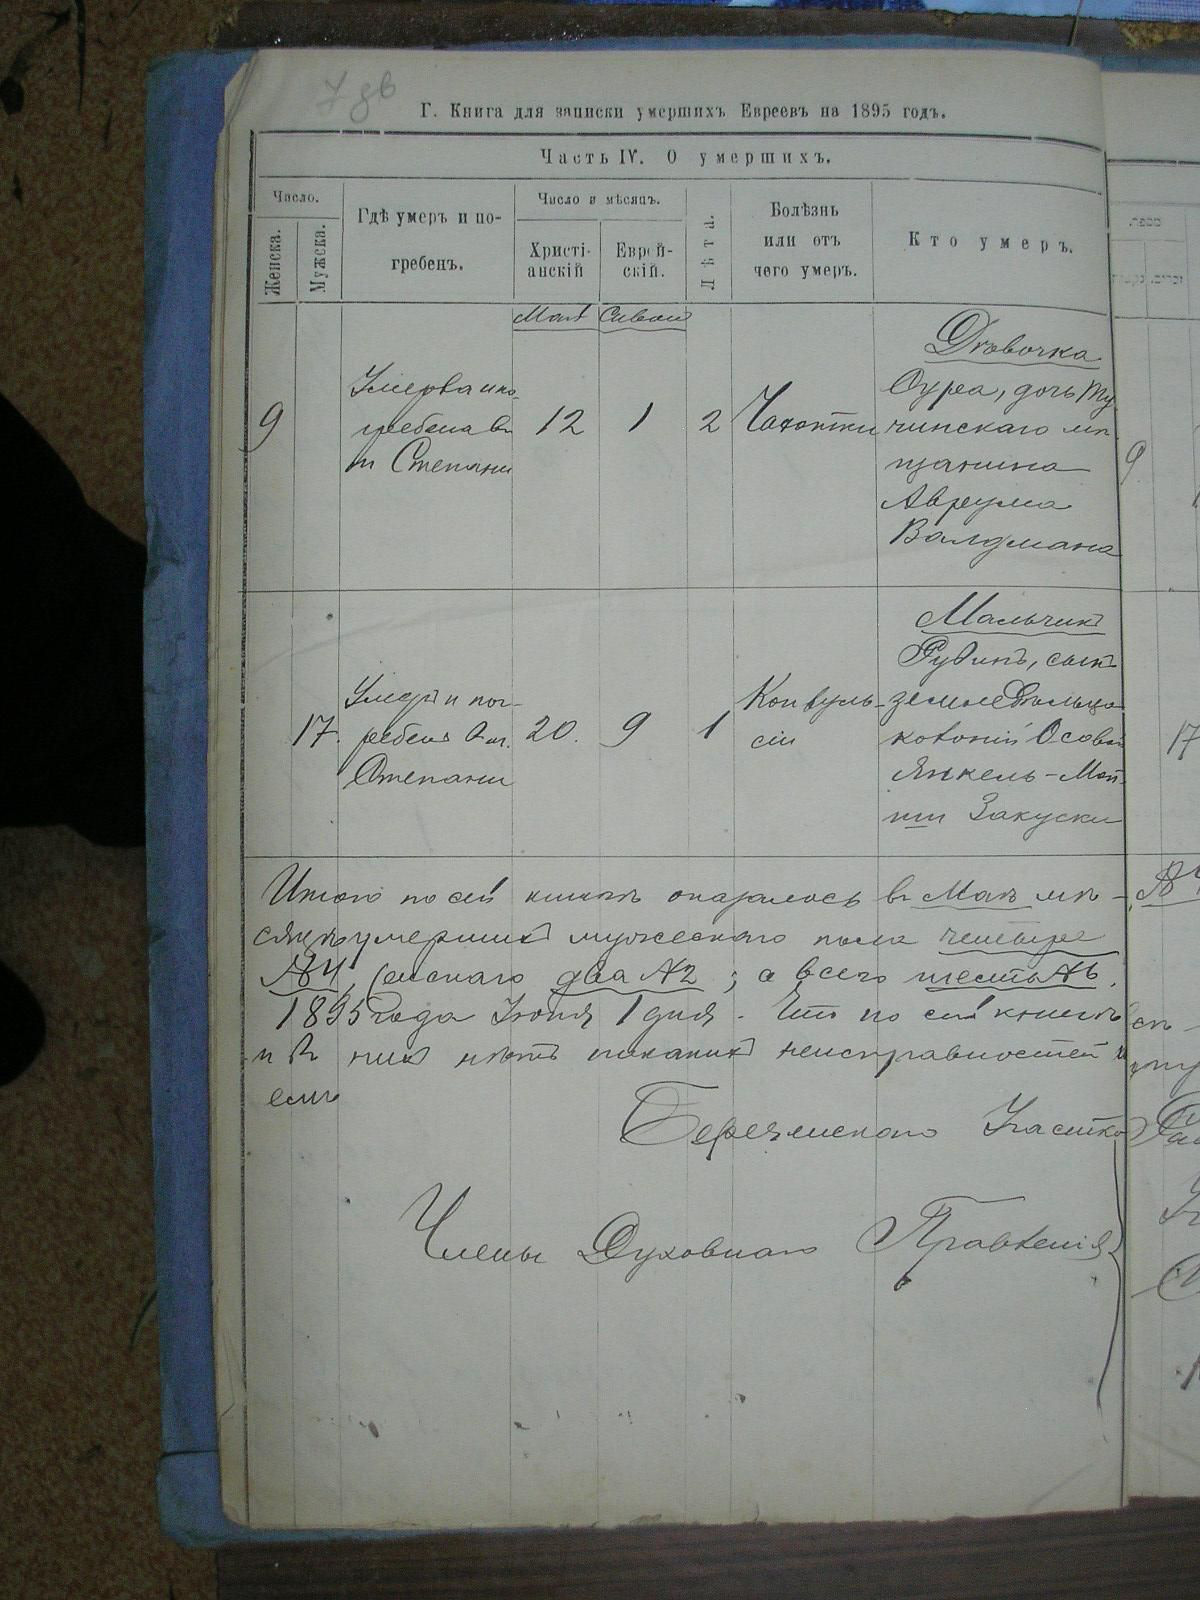 7 дв
Г. Книга для записки умершихъ Евреевъ на 1895 годъ.
Часть IV. О умершихъ.
Число.
Женска.
Мужска.
Гдѣ умеръ и по-
гребенъ.
Число и мѣсяцъ.
Христі-
анскій
Еврей-
скій.
Лѣта.
Болѣзнь
или отъ
чего умеръ.
Кто умеръ.
Май
Сиванъ
9
Умерла и по-
гребена въ
м Степани
12
1
2
Чахотки
Дѣвочка
Сура, дочь Ту
чинскаго мѣ
щанина
Аврума
Валдмана
9
17.
Умеръ и пог-
ребенъ в м.
Степани
20.
9
1
Конвуль-
сіи
Мальчикъ
Рувинъ, сынъ
земледѣльца
колоніи Осова
Янкель-Мот-
ти Закуски
17
Итого по сей книгѣ оказалось въ Маѣ мѣ-
сяцѣ умершихъ мужескаго пола четыре
№4, женскаго два №2; а всего шесть №6.
1895 года Іюня 1 дня. Что по сей книгѣ
нихъ нѣтъ никакихъ неисправностей
Березненскаго Участка
Члены Духовнаго Правленія